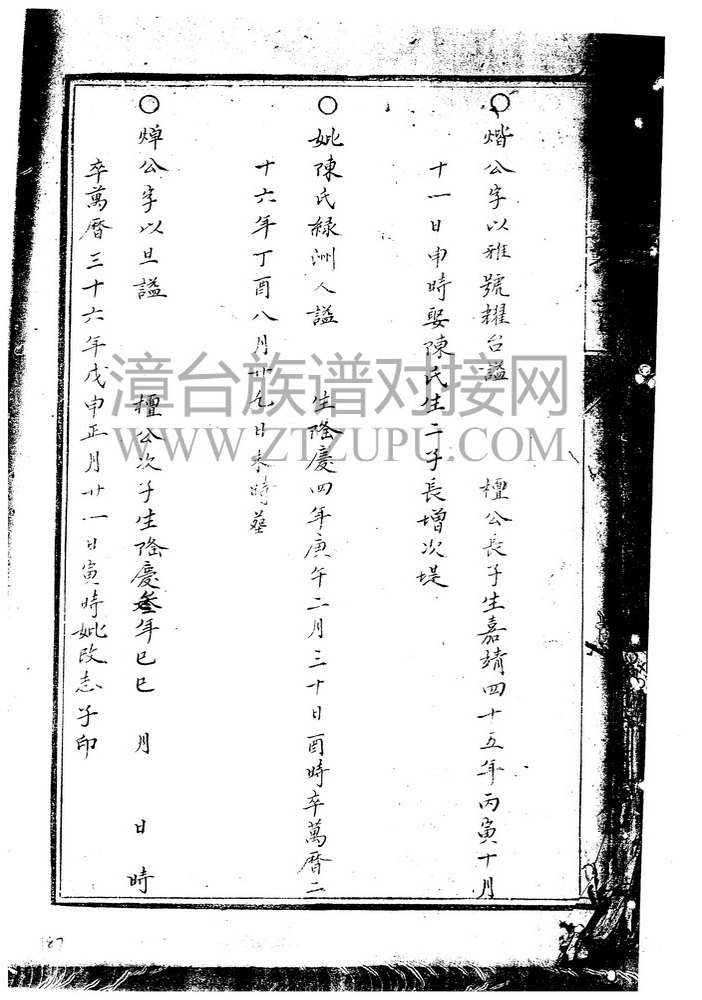 ○煯公字以雅號耀台謚 檀公長子生嘉靖四十五年丙寅十月
十一日申時娶陳氏生二子長增次堤
○妣陳氏綠洲人謚 生隆慶四年庚午二月三十日酉時卒萬曆二
十六年丁酉八月廿九日未時墓
○焯公字以旦謚 檀公次子生隆慶叁年巳巳 月 日 時
卒萬曆三十六年戊申正月廿一日寅時妣改志子印
漳台族谱对接网
WWW.ZTZUPU.COM
187